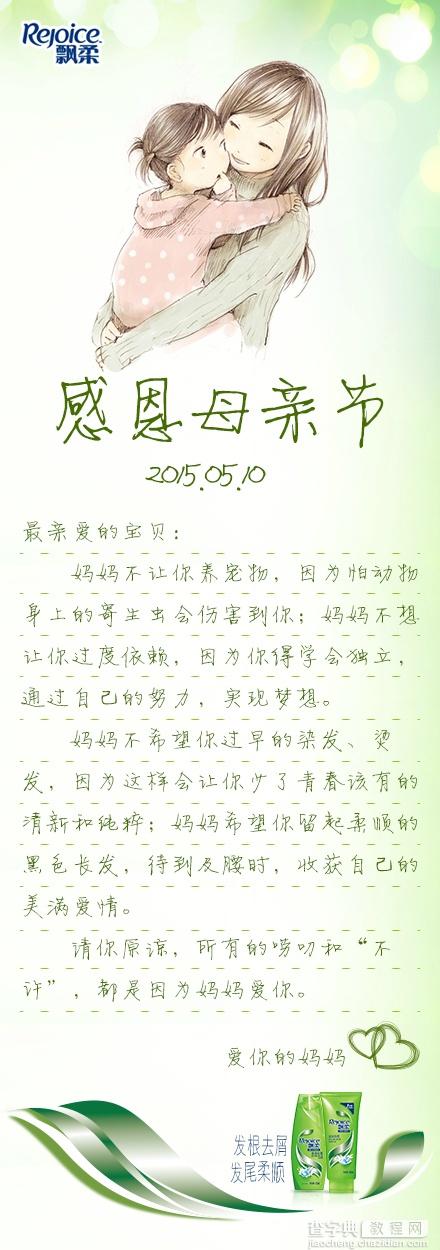 Rejoice
飘柔
感恩母亲节
2015.05.10
最亲爱的宝贝：
妈妈不让你养宠物，因为怕动物
身上的寄生虫会伤害到你；妈妈不想
让你过度依赖，因为你得学会独立，
通过自己的努力，实现梦想。
妈妈不希望你过早的染发、烫
发，因为这样会让你少了青春该有的
清新和纯粹；妈妈希望你留起柔顺的
黑色长发，待到及腰时，收获自己的
美满爱情。
请你原谅，所有的唠叨和“不
许”，都是因为妈妈爱你。
爱你的妈妈
发根去屑
发尾柔顺
Rejoice
飘柔
Rejoice
飘柔
查字典 教程网
jiaocheng.chazidian.com